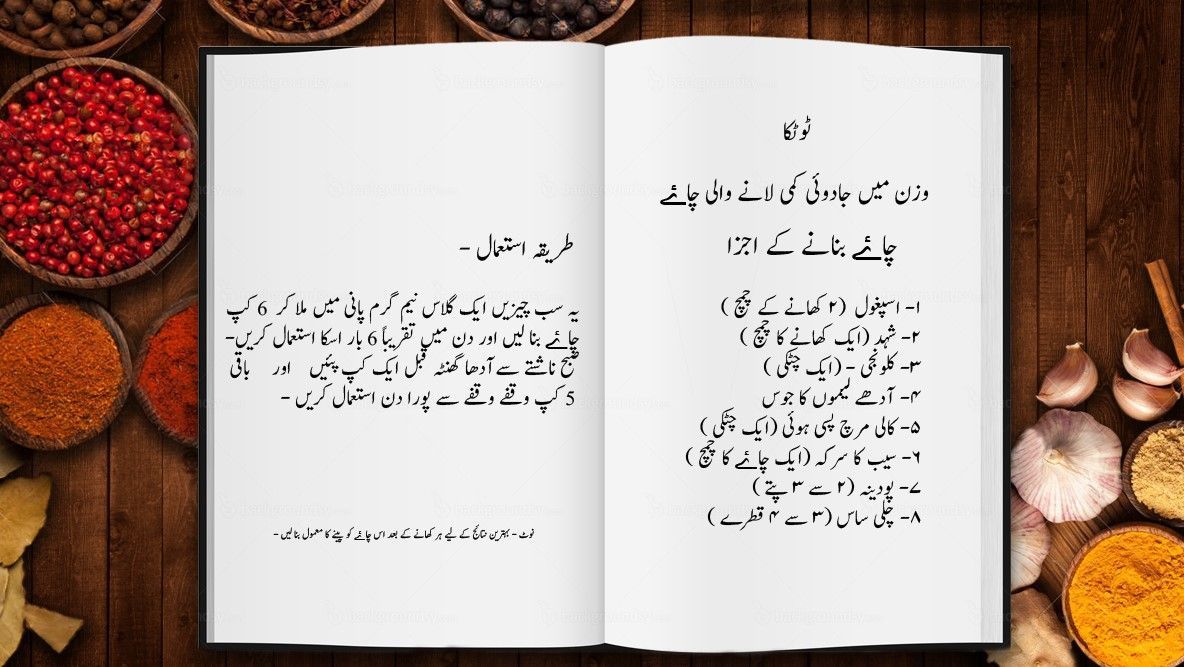 ٹوٹکا
وزن میں جادوئی کمی لانے والی چائے
چائے بنانے کے اجزا
۱- اسپغول (۲ کھانے کے چمچ )
۲- شہد (ایک کھانے کا چمچ )
۳- کلونجی - (ایک چٹکی )
۴- آدھے لیموں کا جوس
۵- کالی مرچ پسی ہوئی (ایک چٹکی )
۶- سیب کا سرکہ (ایک چائے کا چمچ )
۷- پودینہ (۲ سے ۳ پتے )
۸- چلی ساس (۳ سے ۴ قطرے )
طریقہ استعمال -
یہ سب چیزیں ایک گلاس نیم گرم پانی میں ملا کر 6 کپ
چائے بنا لیں اور دن میں تقریباً 6 بار اسکا استعمال کریں-
صبح ناشتے سے آدھا گھنٹہ قبل ایک کپ پئیں اور باقی
5 کپ وقفے وقفے سے پورا دن استعمال کریں -
نوٹ - بہترین نتائج کے لیے ہر کھانے کے بعد اس چائے کو پینے کا معمول بنا لیں -